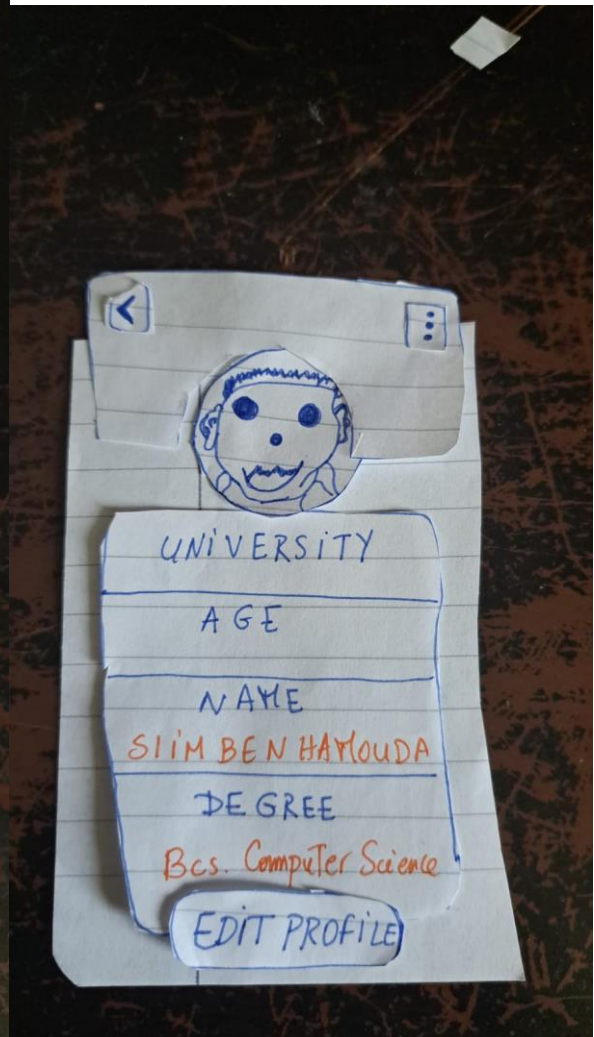 UNIVERSITY
AGE
NAME
SLIM BEN HAMOUDA
DEGREE
Bcs. Computer Science
EDIT PROFILE